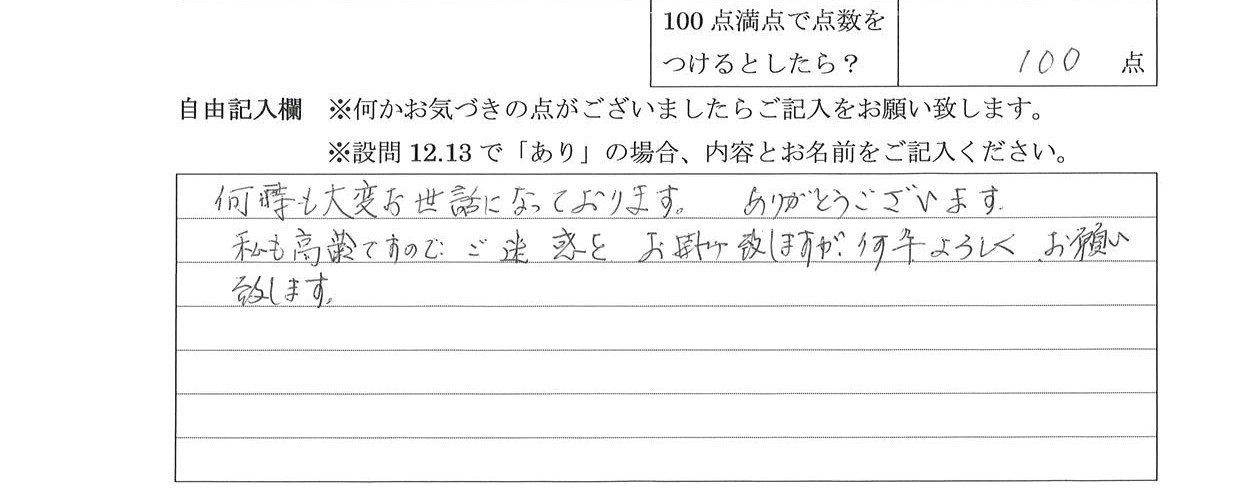 100点満点で点数を
つけるとしたら？
100 点
自由記入欄 ※何かお気づきの点がございましたらご記入をお願い致します。
※設問12.13で「あり」の場合、内容とお名前をご記入ください。
何時も大変お世話になっております。 ありがとうございます.
私も高齢ですので、ご迷惑を お掛け致しますが、何卒よろしく お願い
致します。